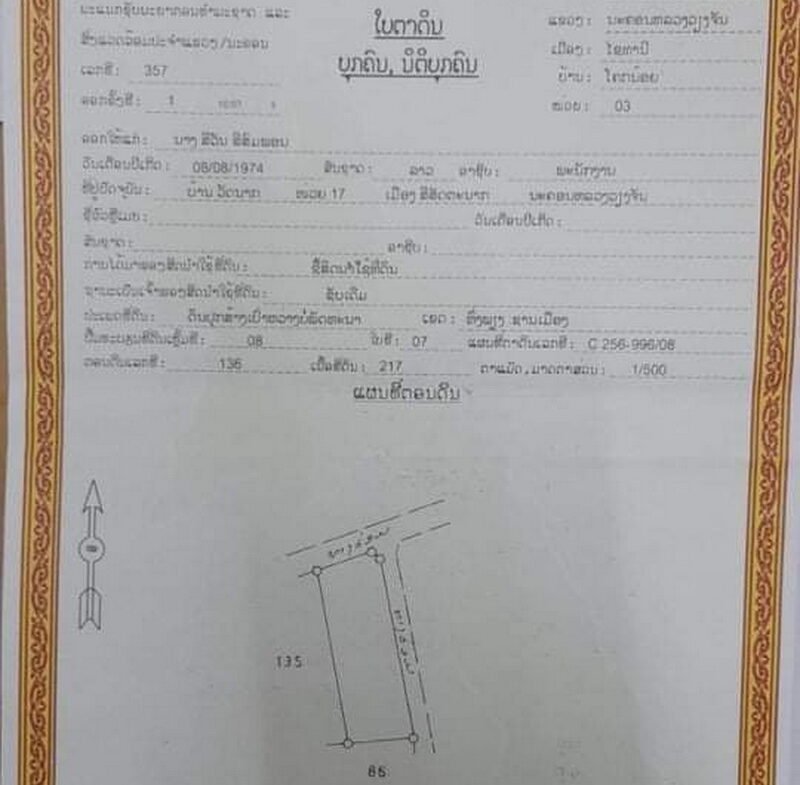 ພະແນກຊັບພະຍາກອນທຳມະຊາດ ແລະ
ສິ່ງແວດລ້ອມປະຈຳແຂວງ/ນະຄອນ
ເລກທີ: 357
ອອກຄັ້ງທີ: 1
ໃບຕາດິນ
ບຸກຄົນ, ນິຕິບຸກຄົນ
ແຂວງ: ນະຄອນຫລວງວຽງຈັນ
ເມືອງ: ໄຊທານີ
ບ້ານ: ໂຄກນ້ອຍ
ໜ່ວຍ: 03
ອອກໃຫ້ແກ່: ນາງ ສີວັນ ສີສົມພອນ
ວັນເດືອນປີເກີດ: 08/08/1974 ສັນຊາດ: ລາວ ອາຊີບ: ພະນັກງານ
ທີ່ຢູ່ປັດຈຸບັນ: ບ້ານ ວັດນາກ ໜ່ວຍ 17 ເມືອງ ສີສັດຕະນາກ ນະຄອນຫລວງວຽງຈັນ
ຊື່ຜົວຫຼືເມຍ: ວັນເດືອນປີເກີດ:
ສັນຊາດ: ອາຊີບ:
ການໄດ້ມາຂອງສິດນຳໃຊ້ທີ່ດິນ: ຊື້ສິດນຳໃຊ້ທີ່ດິນ
ຖານະເປັນເຈົ້າຂອງສິດນຳໃຊ້ທີ່ດິນ: ຊັບເດີມ
ປະເພດທີ່ດິນ: ດິນປຸກສ້າງເປົ່າຫວ່າງບໍ່ພັດທະນາ ເຂດ: ທົ່ງພຽງ ຊານເມືອງ
ປຶ້ມທະບຽນທີ່ດິນເຫຼັ້ມທີ: 08 ໃບທີ: 07 ແຜນທີ່ຕາດິນເລກທີ: C 256-996/08
ຕອນດິນເລກທີ: 136 ເນື້ອທີ່ດິນ: 217 ຕາແມັດ, ມາດຕາສ່ວນ: 1/500
ແຜນທີ່ຕອນດິນ
135
86